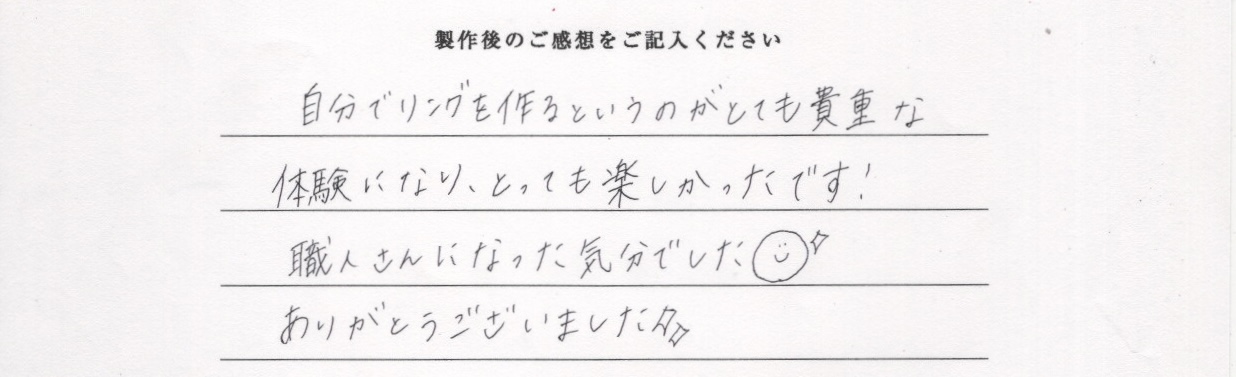 製作後のご感想をご記入ください
自分でリングを作るというのがとても貴重な
体験になり、とっても楽しかったです!
職人さんになった気分でした
ありがとうございました